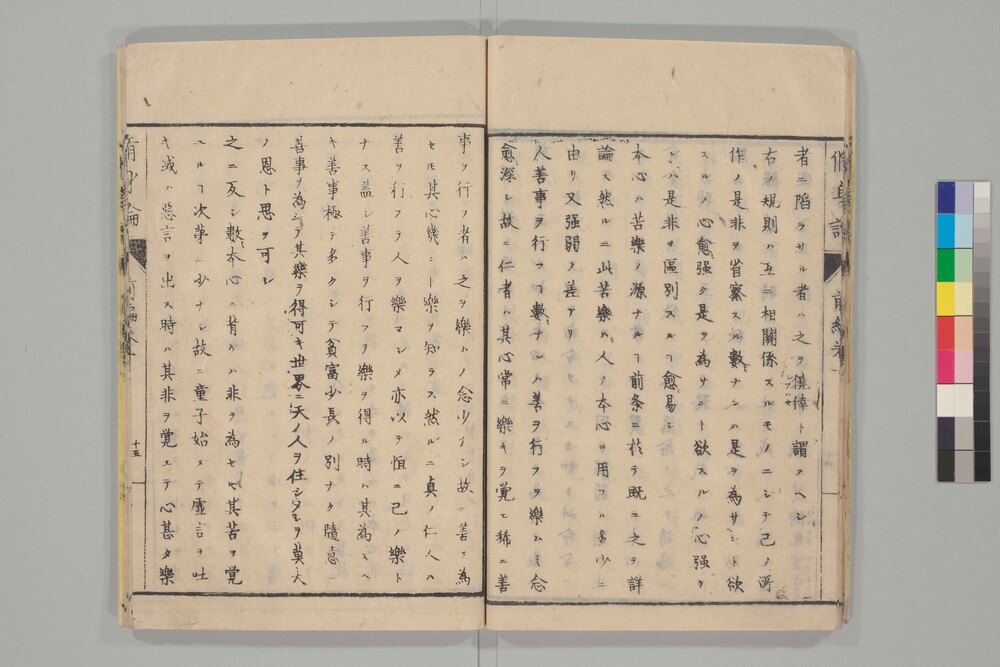 者ニ陷ラサル者ハ之ヲ僥倖ト謂フヘシ
右ノ規則ハ互ニ相關係スルモノニシテ己ノ所
作ノ是非ヲ省察スル數ナレハ是ヲ為サント欲
スルノ心愈强ク是ヲ為サント欲スルノ心强ケ
レハ是非ヲ區別スルヿ愈易シ
本心ハ苦樂ノ源ナルヿ前条ニ於テ既ニ之ヲ詳
論ス然ルニ此苦樂ハ人ノ本心ヲ用フル多少ニ
由リ又强弱ノ差アリ
人善事ヲ行フヿ數ナレハ善ヲ行フヲ樂ムノ念
愈深シ故ニ仁者ハ其心常ニ樂キヲ覚エ稀ニ善
事ヲ行フ者ハ之ヲ樂ムノ念少ナシ故ニ善ヲ為
セトモ其心幾ント樂ヲ知ラス然ルニ真ノ仁人ハ
善ヲ行フテ人ヲ樂マシメ亦以テ恒ニ己ノ樂ト
ナス盖シ善事ヲ行フテ樂ヲ得ル時ハ其為スヘ
キ善事極テ多クシテ貧富少長ノ別ナク隨意ニ
善事ヲ為シテ其樂ヲ得可キ世界ニ天ノ人ヲ住シタルヲ莫大
ノ恩ト思フ可シ
之ニ反シ數本心ニ背ハ非ヲ為セトモ其苦ヲ覚
ユルヿ次第ニ少ナシ故ニ童子始メテ虛言ヲ吐
キ或ハ惡言ヲ出ス時ハ其非ヲ覚エテ心甚タ樂
十五